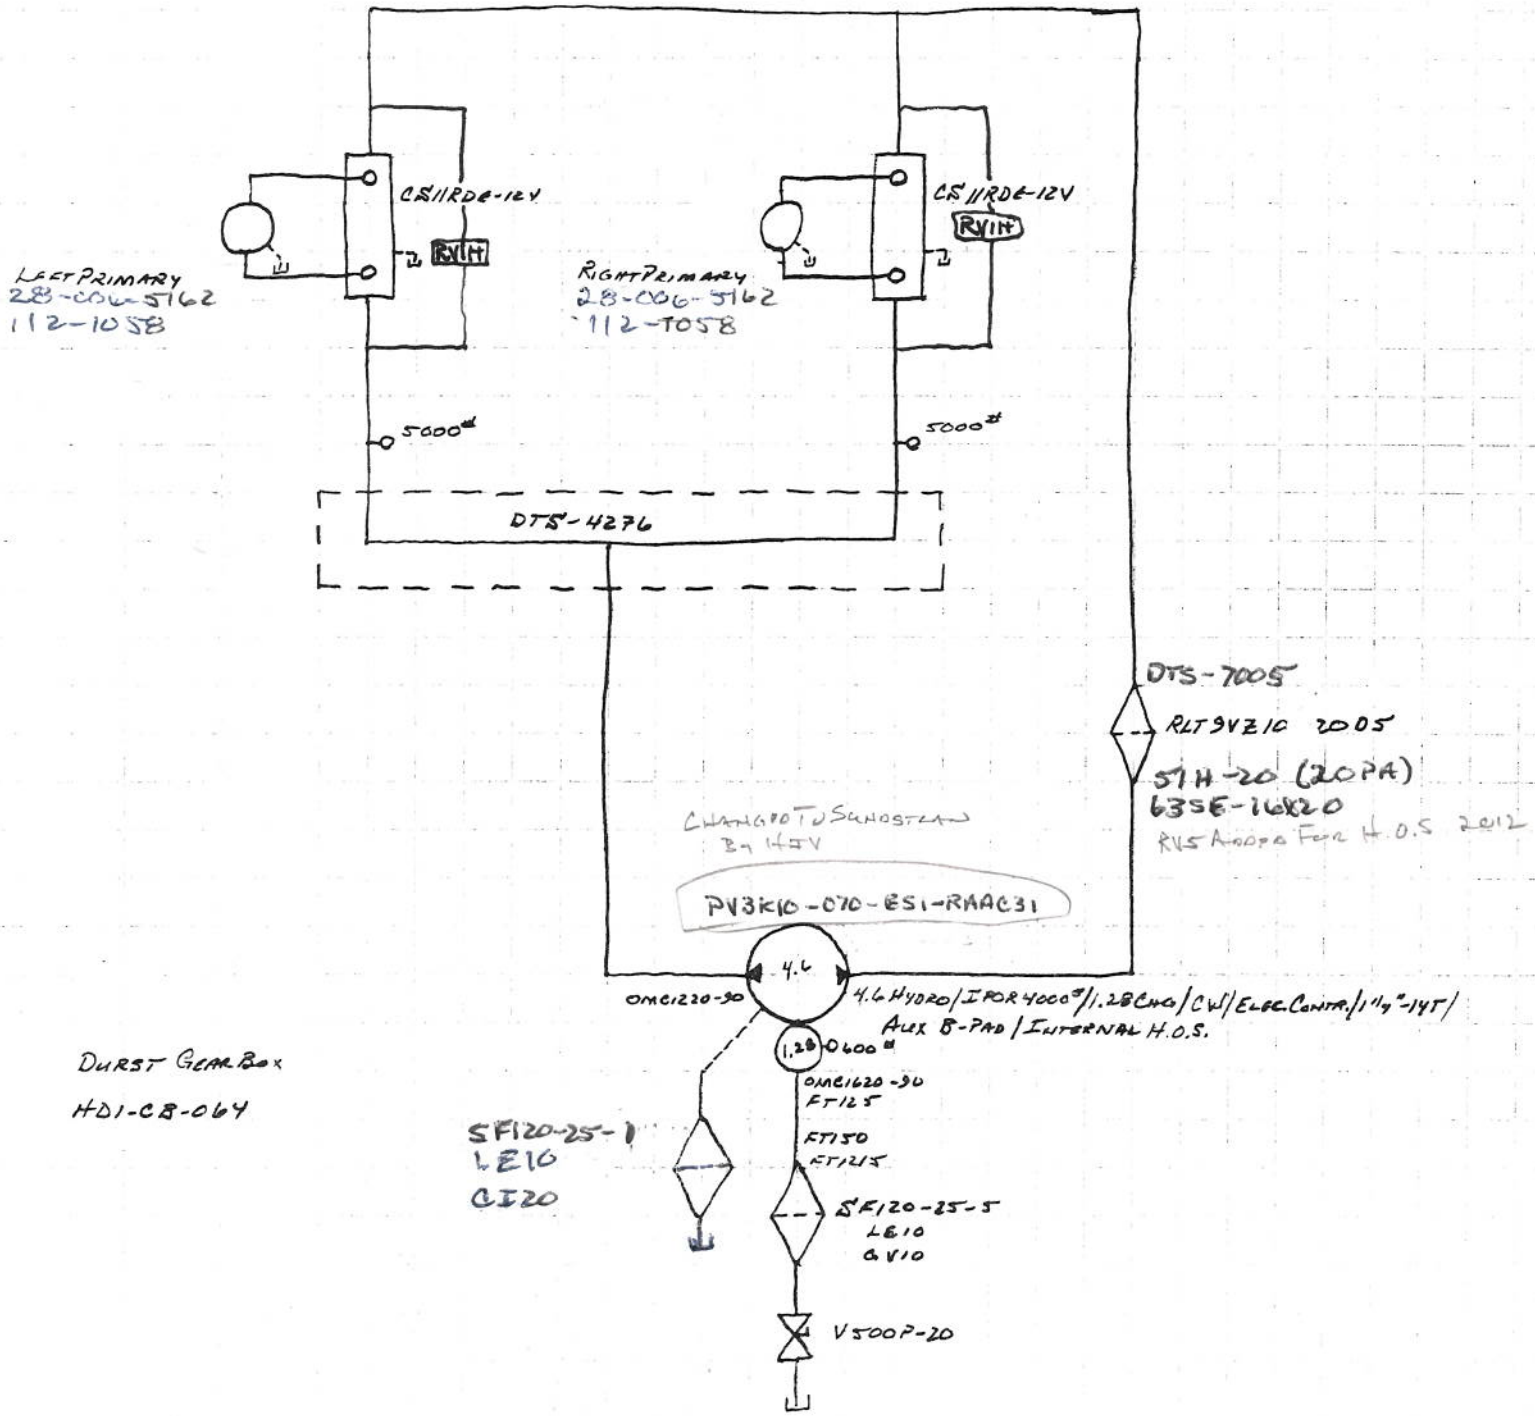 CS11RDE-12V
RV1H
LEFT PRIMARY
28-006-5162
112-1058
CS11RDE-12V
RV1H
RIGHT PRIMARY
28-006-5162
112-1058
5000#
5000#
DTS-4276
DTS-7005
RLT9VZ10 2005
57H-20 (20PA)
63SE-16X20
RVS ADDED FOR H.O.S 2012
CHANGED TO SUNDSTLAN
By HJV
PV3K10-070-ES1-RAAC31
4.6
OMC1220-90
4.6 HYDRO/IPOR 4000#/1.28 CHG/CW/ELEC. CONTR./1 1/4"-14T/
AUX B-PAD/INTERNAL H.O.S.
1.28
600#
OMC1620-90
FT125
DURST GEAR BOX
HD1-CB-064
SF120-25-1
LE10
CI20
FT150
FT1215
SF120-25-5
LE10
GV10
V500P-20